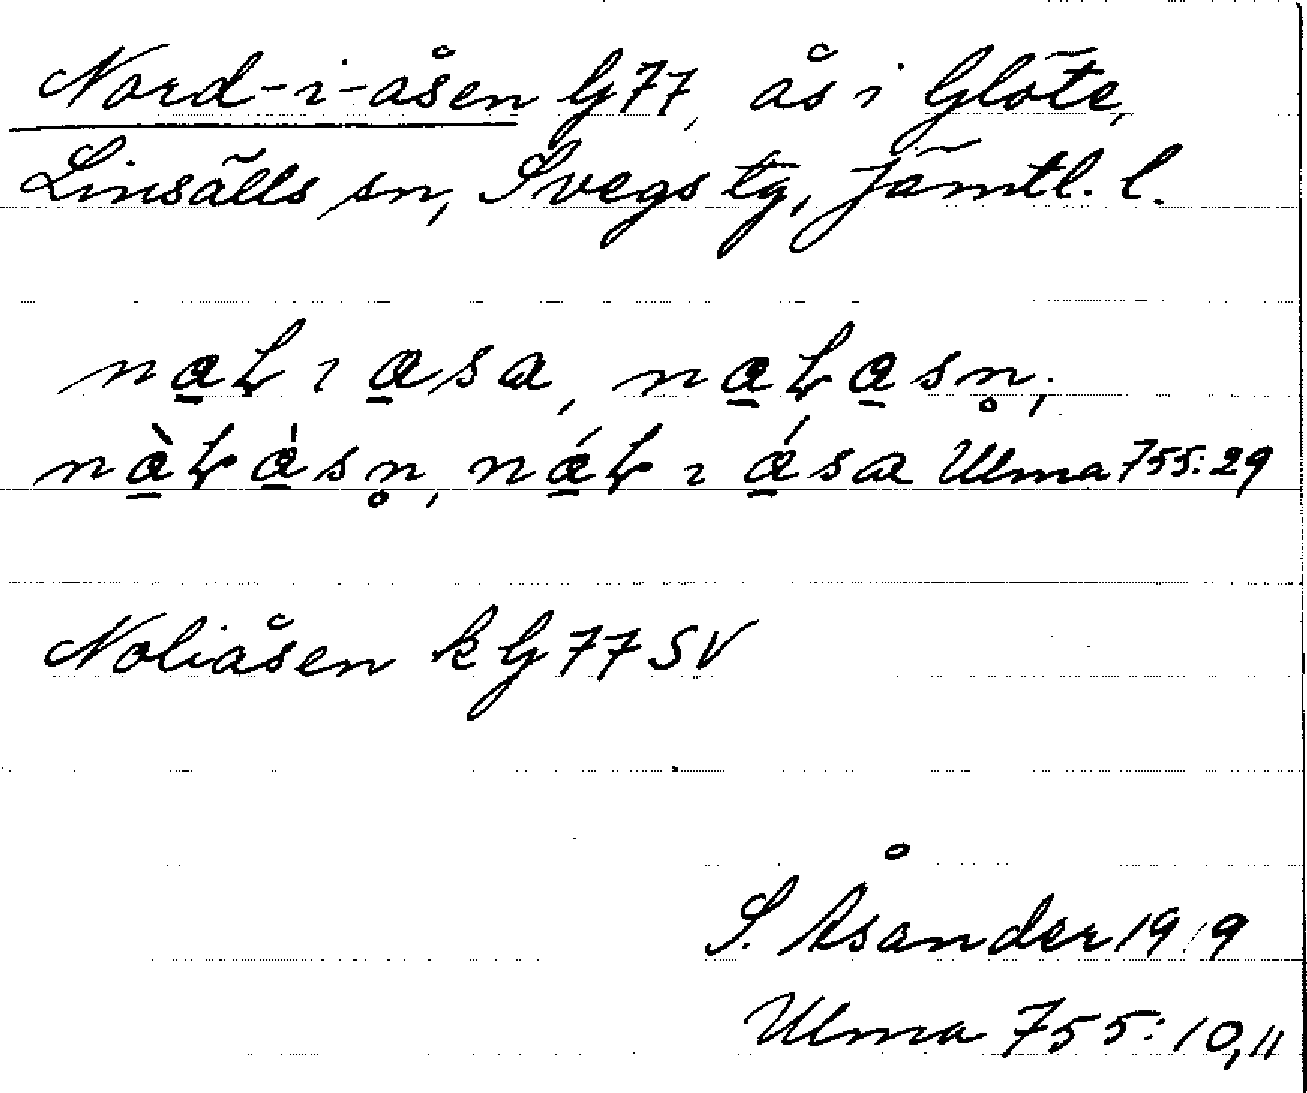 Nord-i-åsen G77, ås i Glöte,
Linsälls sn, Svegs tg, Jämtl. l.
na̱ꞎ ı a̱sa, na̱ꞎa̱sn̥;
nà̱ꞎà̱sn̥, ná̱ꞎ ı á̱sa Ulma 755:29
Noliåsen k G77SV
S. Åsander 1919
Ulma 755:10,11